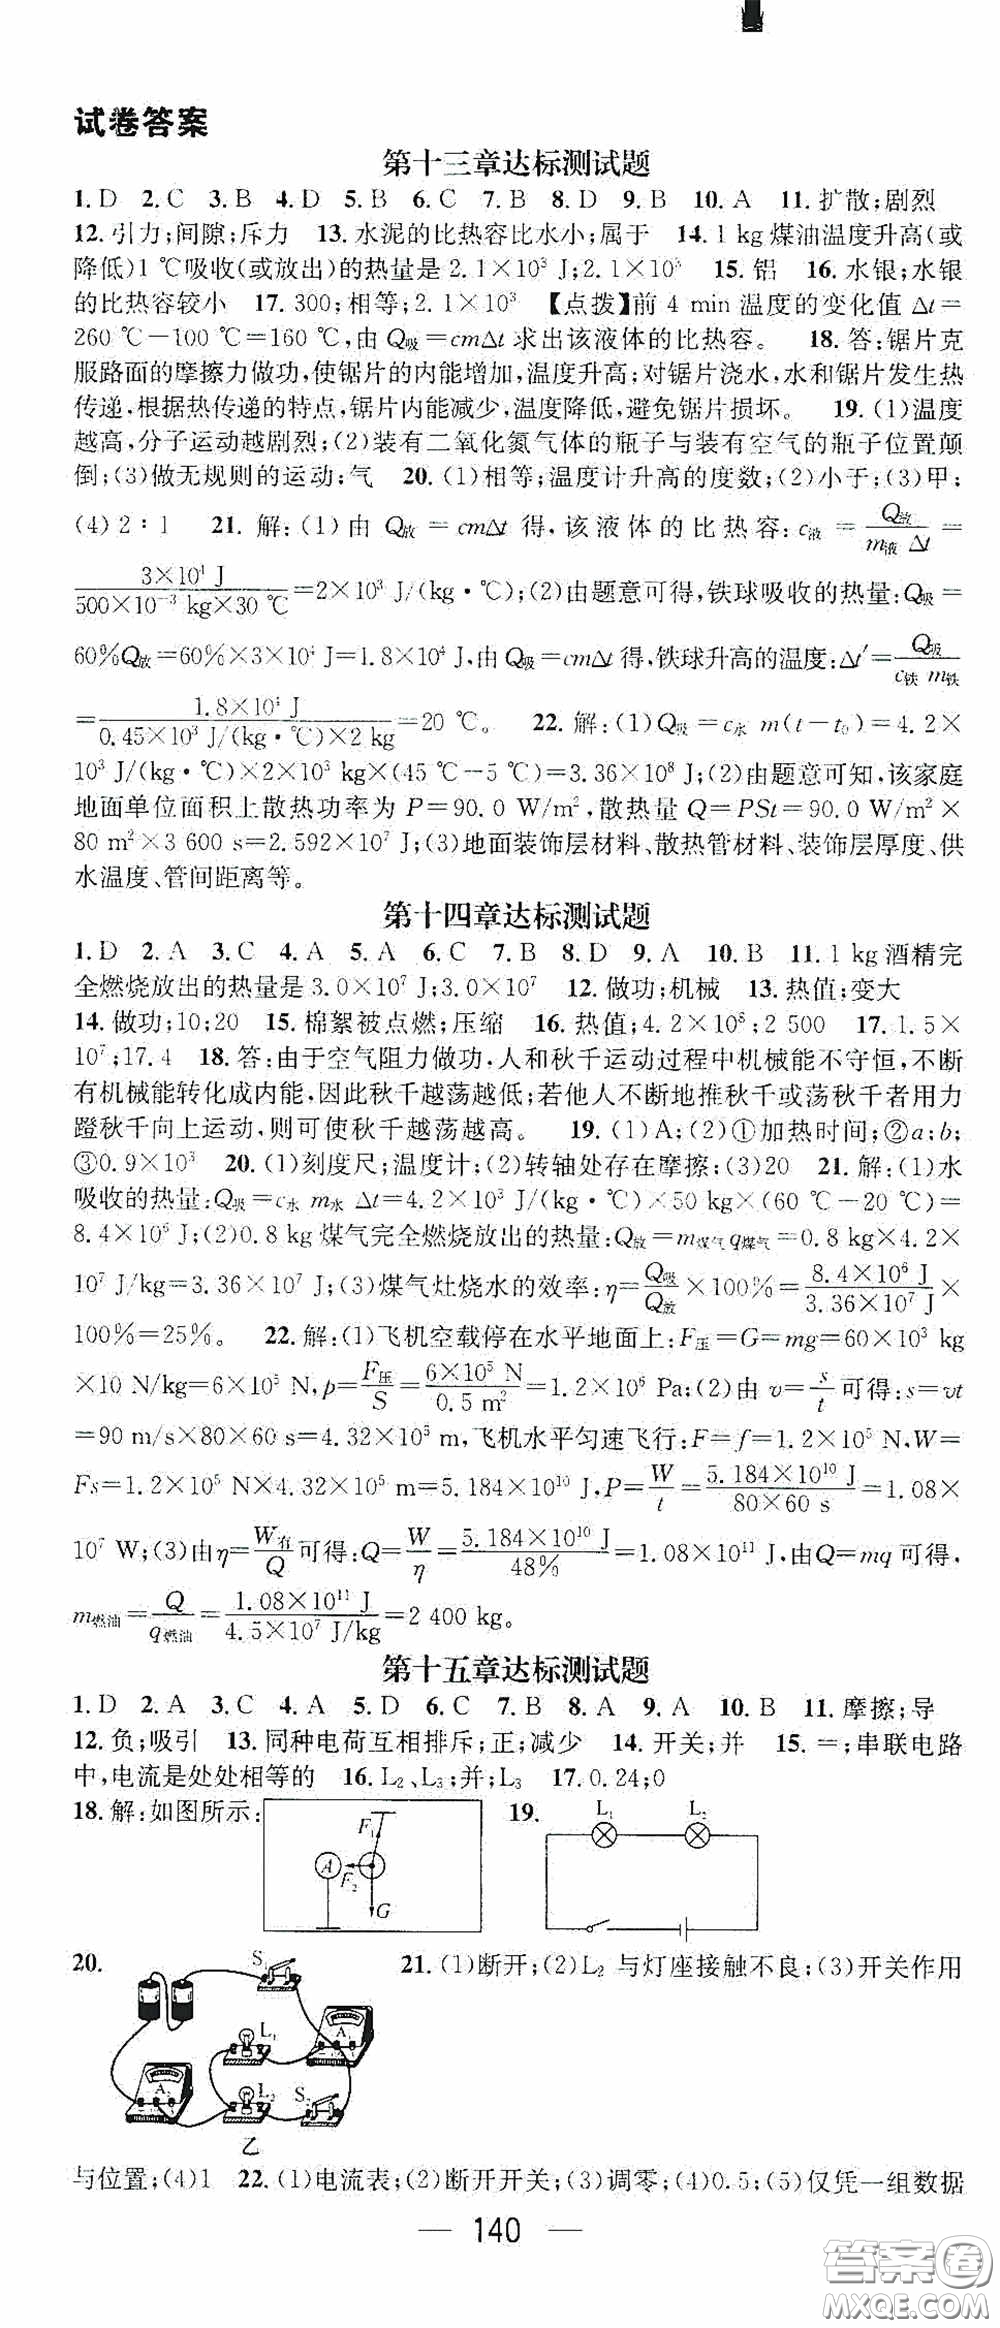 试卷答案
第十三章达标测试题
1. D 2. C 3. B 4. D 5. B 6. C 7. B 8. D 9. B 10. A 11. 扩散;剧烈
12. 引力;间隙;斥力 13. 水泥的比热容比水小;属于 14. 1 kg煤油温度升高(或
降低)1 ℃吸收(或放出)的热量是2.1×10³ J;2.1×10³ 15. 铝 16. 水银;水银
的比热容较小 17. 300;相等;2.1×10³ 【点拨】前 4 min 温度的变化值 Δt=
260 ℃-100 ℃=160 ℃,由 Q吸=cmΔt 求出该液体的比热容。 18. 答:锯片克
服路面的摩擦力做功,使锯片的内能增加,温度升高;对锯片浇水,水和锯片发生热
传递,根据热传递的特点,锯片内能减少,温度降低,避免锯片损坏。 19. (1)温度
越高,分子运动越剧烈;(2)装有二氧化氮气体的瓶子与装有空气的瓶子位置颠
倒;(3)做无规则的运动;气 20. (1)相等;温度计升高的度数;(2)小于;(3)甲;
(4)2∶1 21. 解:(1)由 Q放=cmΔt 得,该液体的比热容:c液=Q放/(m液 Δt)=
3×10⁴ J/(500×10⁻³ kg×30 ℃)=2×10³ J/(kg·℃);(2)由题意可得,铁球吸收的热量:Q吸=
60%Q放=60%×3×10⁴ J=1.8×10⁴ J,由Q吸=cmΔt得,铁球升高的温度:Δt′=Q吸/(c铁 m铁)
=1.8×10⁴ J/(0.45×10³ J/(kg·℃)×2 kg)=20 ℃。 22. 解:(1)Q吸=c水 m(t-t₀)=4.2×
10³ J/(kg·℃)×2×10³ kg×(45 ℃-5 ℃)=3.36×10⁸ J;(2)由题意可知,该家庭
地面单位面积上散热功率为 P=90.0 W/m²,散热量 Q=PSt=90.0 W/m²×
80 m²×3 600 s=2.592×10⁷ J;(3)地面装饰层材料、散热管材料、装饰层厚度、供
水温度、管间距离等。
第十四章达标测试题
1. D 2. A 3. C 4. A 5. A 6. C 7. B 8. D 9. A 10. B 11. 1 kg酒精完
全燃烧放出的热量是3.0×10⁷ J;3.0×10⁷ 12. 做功;机械 13. 热值;变大
14. 做功;10;20 15. 棉絮被点燃;压缩 16. 热值;4.2×10⁸;2 500 17. 1.5×
10⁷;17.4 18. 答:由于空气阻力做功,人和秋千运动过程中机械能不守恒,不断
有机械能转化成内能,因此秋千越荡越低;若他人不断地推秋千或荡秋千者用力
蹬秋千向上运动,则可使秋千越荡越高。 19. (1)A;(2)①加热时间;②a;b;
③0.9×10³ 20. (1)刻度尺;温度计;(2)转轴处存在摩擦;(3)20 21. 解:(1)水
吸收的热量:Q吸=c水 m水 Δt=4.2×10³ J/(kg·℃)×50 kg×(60 ℃-20 ℃)=
8.4×10⁶ J;(2)0.8 kg煤气完全燃烧放出的热量:Q放=m煤气q煤气=0.8 kg×4.2×
10⁷ J/kg=3.36×10⁷ J;(3)煤气灶烧水的效率:η=Q吸/Q放×100%=8.4×10⁶ J/3.36×10⁷ J×
100%=25%。 22. 解:(1)飞机空载停在水平地面上:F压=G=mg=60×10³ kg
×10 N/kg=6×10⁵ N,p=F压/S=6×10⁵ N/0.5 m²=1.2×10⁶ Pa;(2)由 v=s/t可得:s=vt
=90 m/s×80×60 s=4.32×10⁵ m,飞机水平匀速飞行:F=f=1.2×10⁵ N,W=
Fs=1.2×10⁵ N×4.32×10⁵ m=5.184×10¹⁰ J,P=W/t=5.184×10¹⁰ J/(80×60 s)=1.08×
10⁷ W;(3)由η=W有/Q可得:Q=W/η=5.184×10¹⁰ J/48%=1.08×10¹¹ J,由Q=mq可得,
m燃油=Q/q燃油=1.08×10¹¹ J/(4.5×10⁷ J/kg)=2 400 kg。
第十五章达标测试题
1. D 2. A 3. C 4. A 5. D 6. C 7. B 8. A 9. A 10. B 11. 摩擦;导
12. 负;吸引 13. 同种电荷互相排斥;正;减少 14. 开关;并 15. =;串联电路
中,电流是处处相等的 16. L₂、L₃;并;L₃ 17. 0.24;0
18. 解:如图所示:
F₁
A
F₂
G
19.
L₁ L₂
20.
S₁
A₁
L₁
A₂
L₂
S₂
乙
21. (1)断开;(2)L₂ 与灯座接触不良;(3)开关作用
与位置;(4)1 22. (1)电流表;(2)断开开关;(3)调零;(4)0.5;(5)仅凭一组数据
— 140 —
答案圈
MXQE.COM